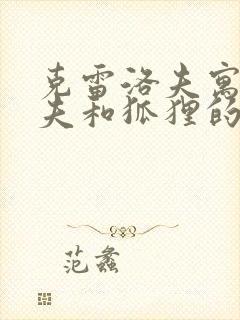 克雷洛夫寓
夫和狐狸的
范蠡